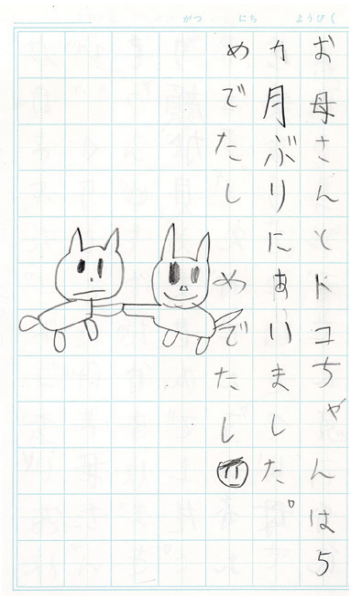 がつ にち ようび
お母さんとドコちゃんは5
カ月ぶりにあいました。
めでたし めでたし